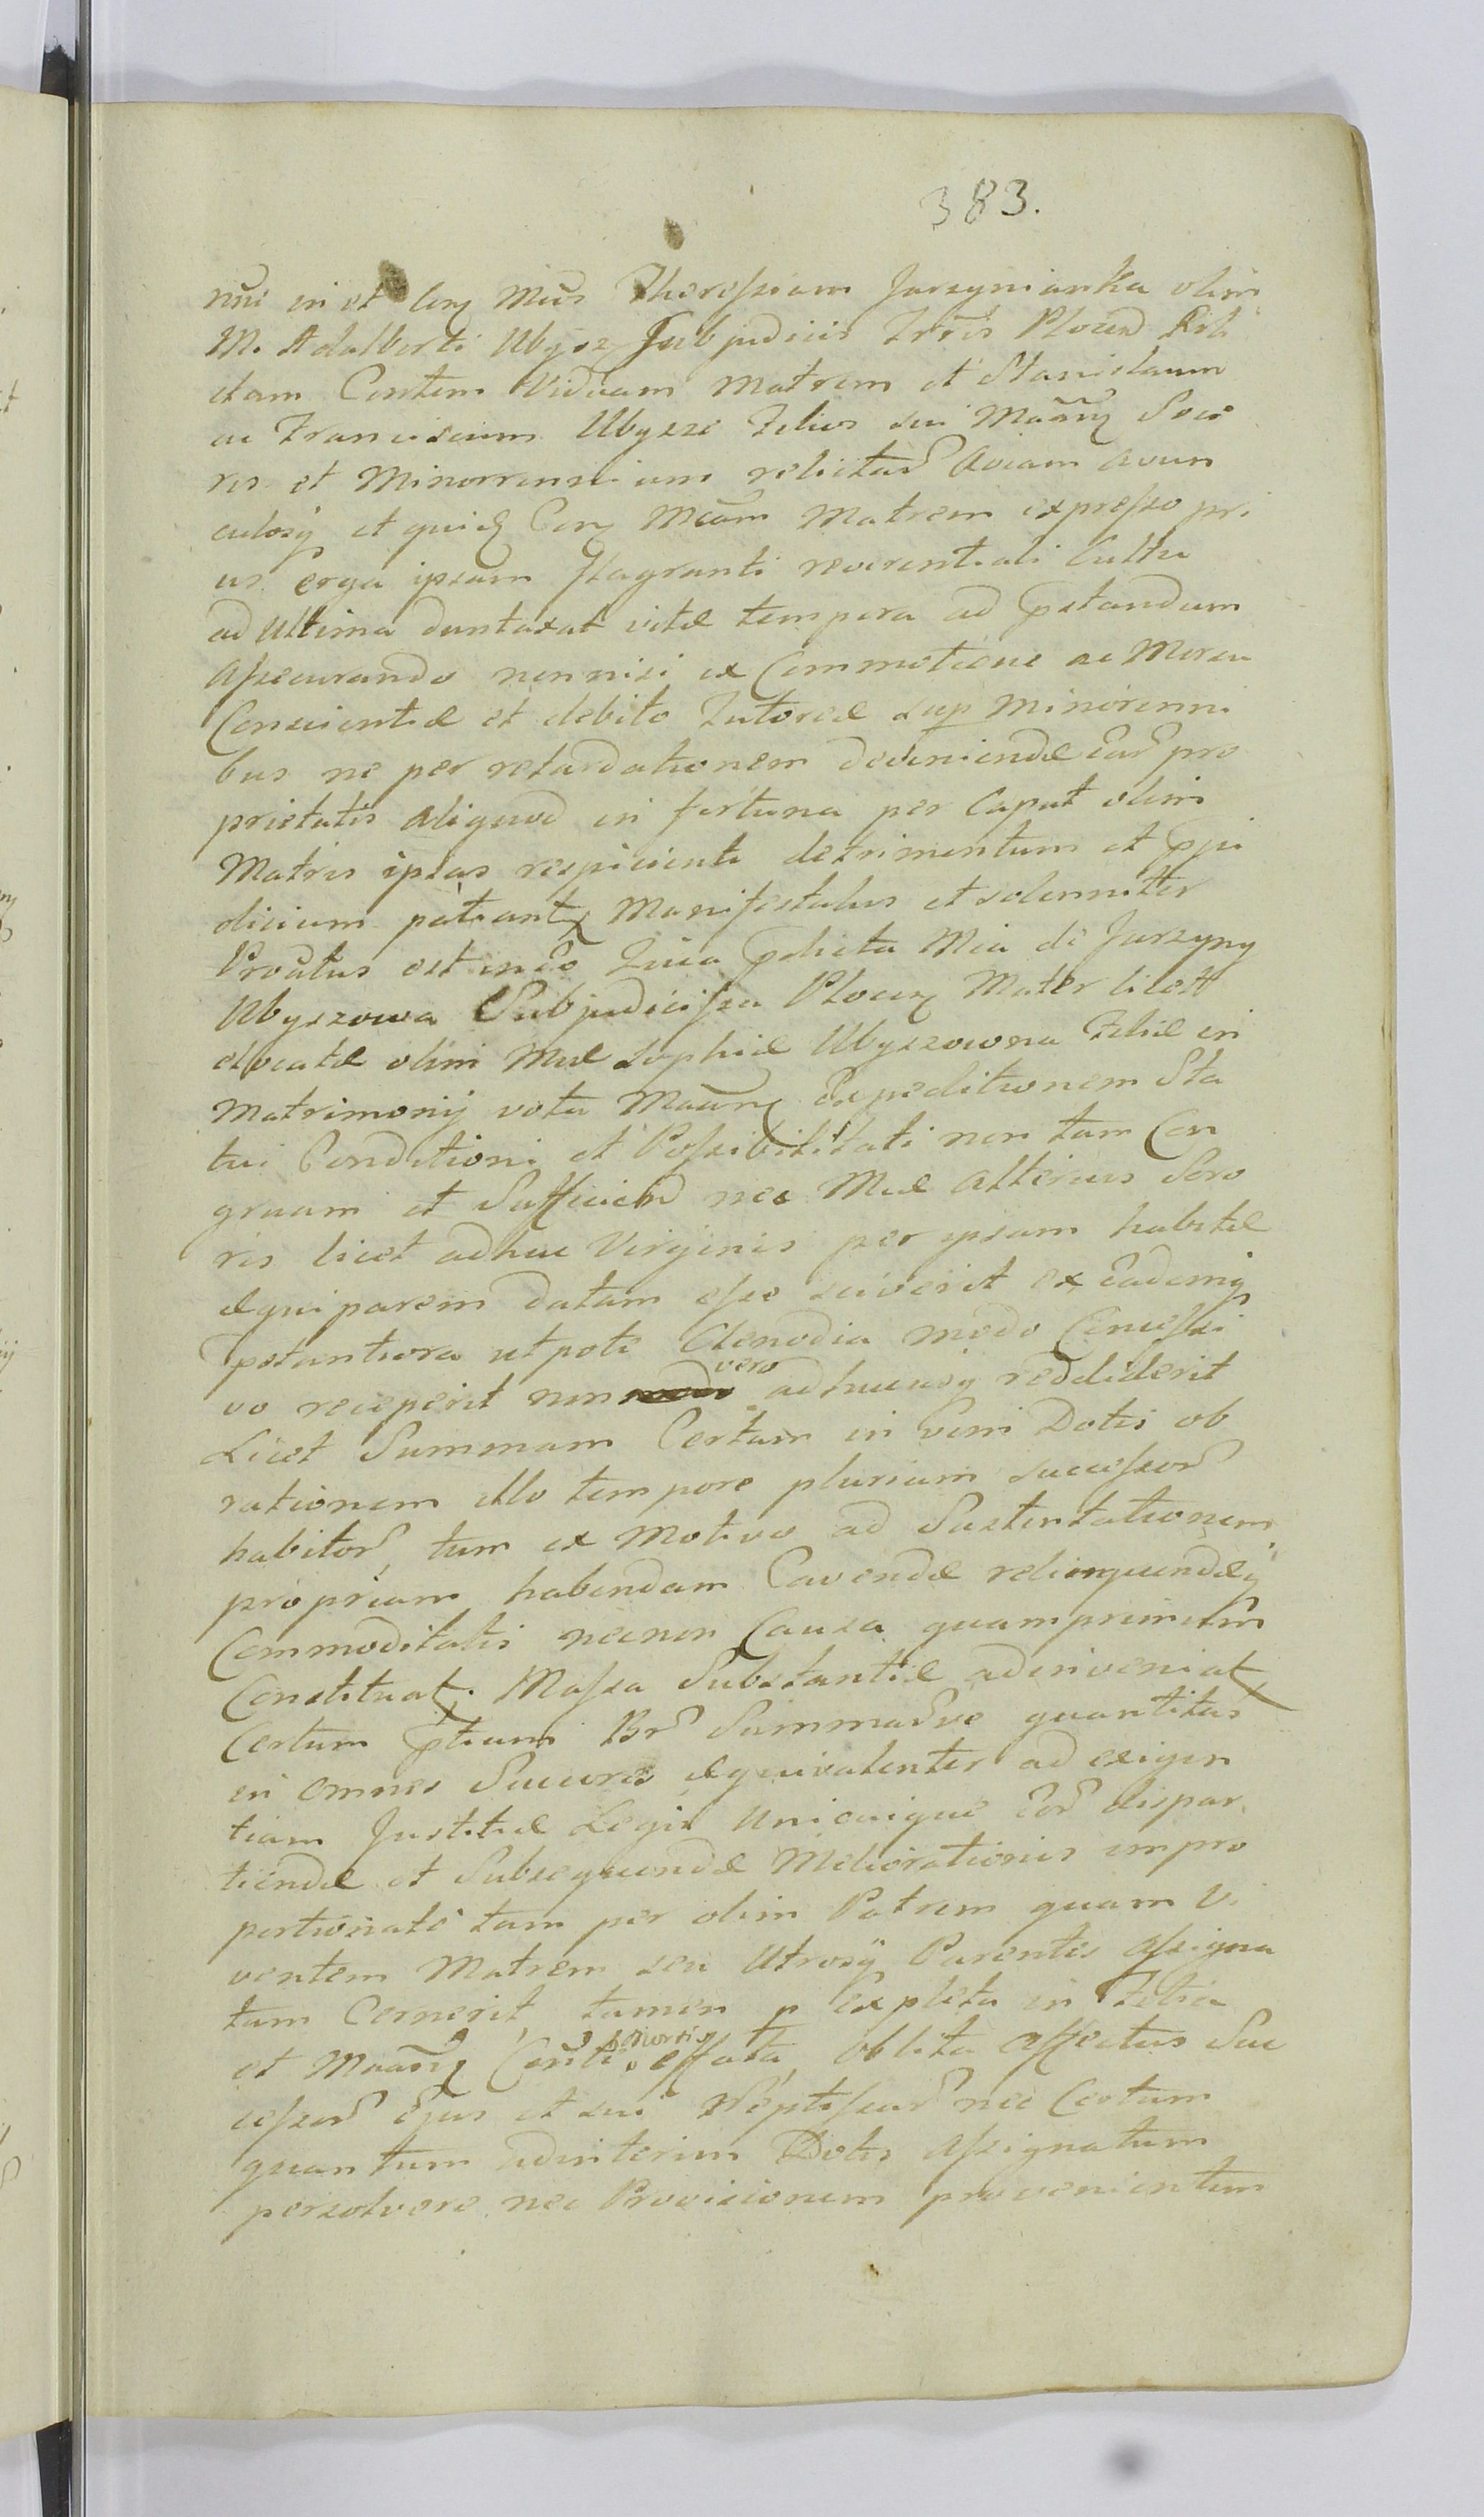 383.
nni in et Mcas Theressiam Jarzynianka olim
M. Adalberti Ubysz Subjudicis Trris Plocens Reli
ctam Viduam Matrem et Stanislaum
ac Franciscum Ubysze Filios sui Soro
ris et Minorennium relictar Aviam Avun
culosq et quid Matrem expresso pri
us erga ipsam flagranti reverentiali Cultu
ad Ultima duntaxat vitæ tempora ad pstandum
Assecurando nonnisi ex Commotione ac Morsu
Conscientiæ et debito Tutoreæ sup Minorenni
bus ne per retardationem deveniendæ ear pro
prietatis aliquod in fortuna per Caput olim
Matris ipsas respicienti detrimentum et pju
dicium patiantr Manifestatus et solenniter
Protus est in eo Quia pdicta Mca de Jarzyny
Ubyszowa Subjudicissa Plocen Mater licet
elocatæ olim Mcæ Sophiæ Ubyszowna Filiæ in
Matrimonij vota Expeditionem Sta
tui Conditioni et Possibilitati non tam Con
gruam et Sufficien nec Mcæ alterius Soro
ris licet adhuc Virginis per ipsam habitæ
æquiparem datam esse sciverit ex eademq
pstantiora utpote Clenodia modo Concessi
vo receperit non vero adhucusq reddiderit
Licet Summam Certam in vim Dotis ob
rationem illo tempore plurium successor
habitor, tum ex Motivo ad Sustentationem
propriam habendam Cavendæ relinquendæq
Commoditatis necnon Causa quamprimum
Constituatr Massa Substantiæ adinveniatr
Certum ptium Br Summarve quantitas
in omnes Succores æquivalenter ad exigen
tiam Justitiæ Legis Unicuique eor dispar
tiendæ et Subsequendæ Meliorationis impro
portionate tam per olim Patrem quam Vi
ventem Matrem seu Utrosq Parentes assigna
tam Cernerit, tamen p Expleta in Filia
et Mortis effata oblita Affectus Suc
cessor Ejus et sui Neptissar nec Certum
quantum adinterim Dotis assignatum
persolvere nec Provisionem provenientem